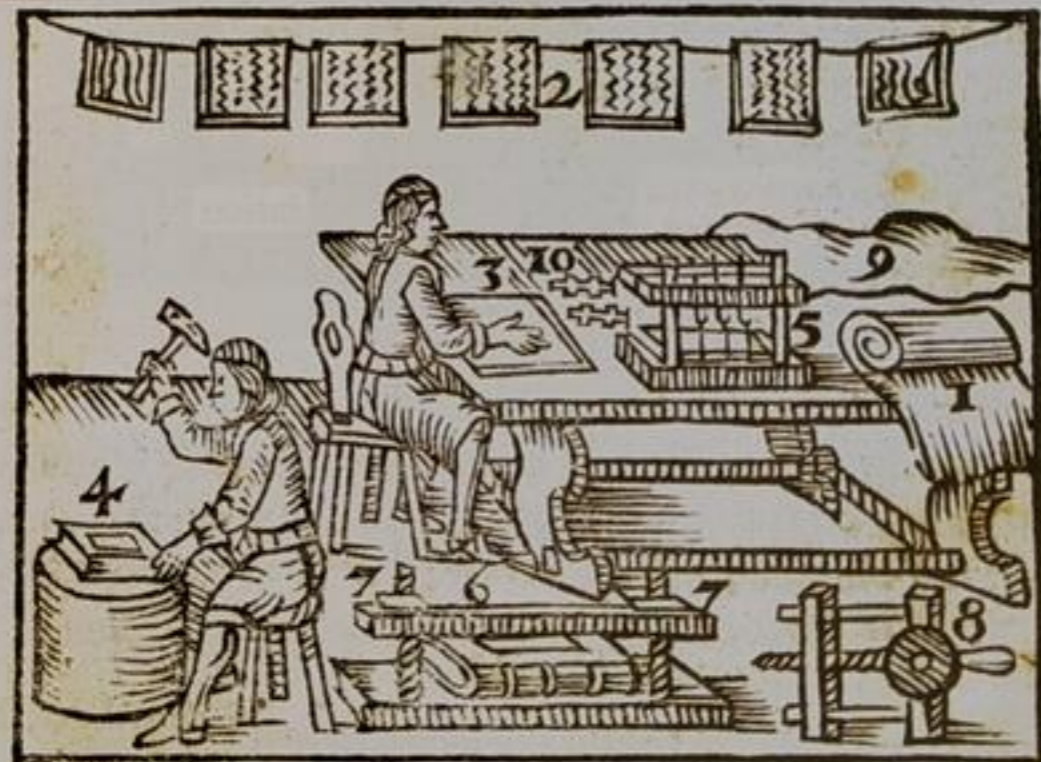 2
3 10 9
5
1
4
7 6 7
8